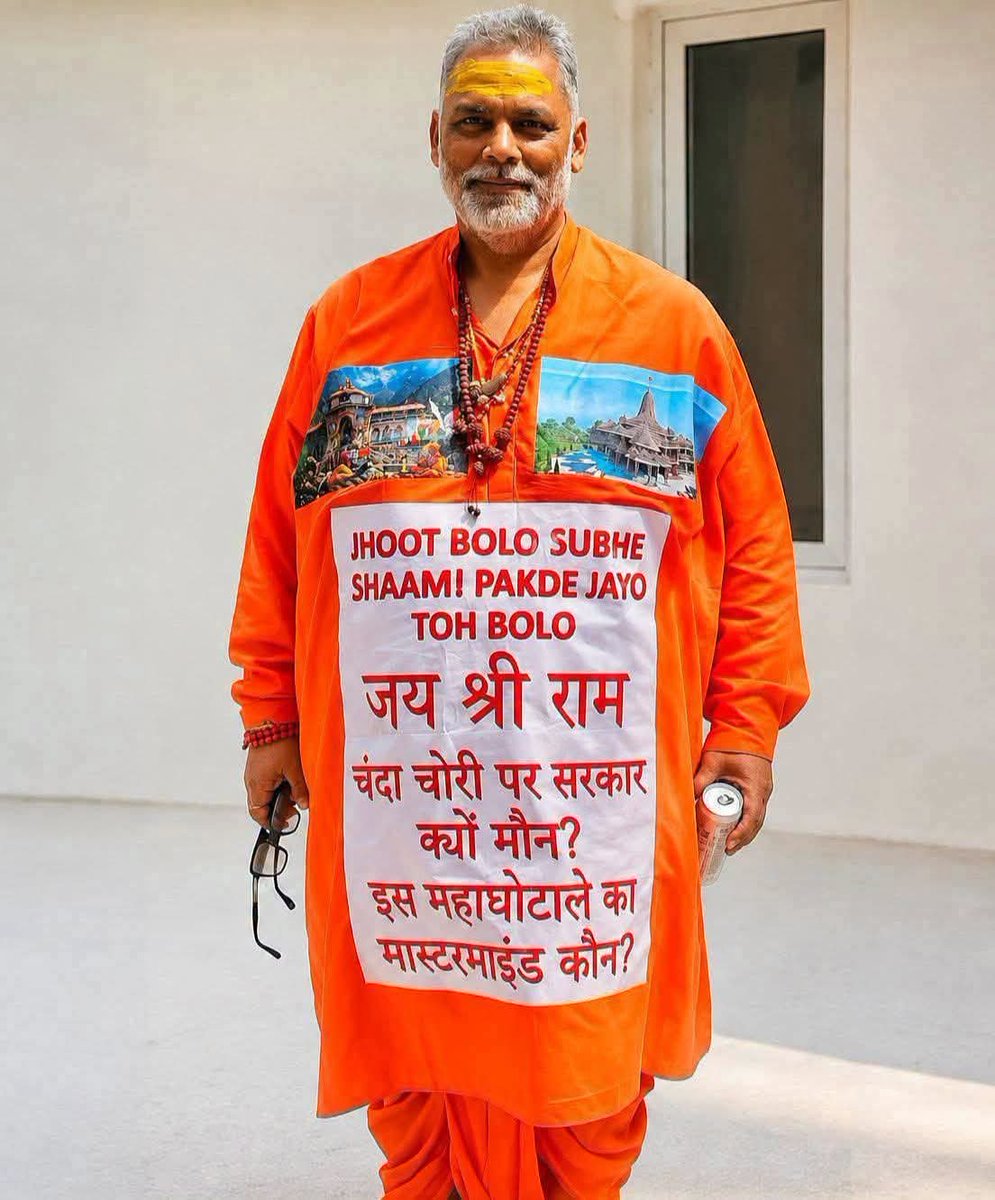 JHOOT BOLO SUBHE
SHAAM! PAKDE JAYO
TOH BOLO
जय श्री राम
चंदा चोरी पर सरकार
क्यों मौन?
इस महाघोटाले का
मास्टरमाइंड कौन?